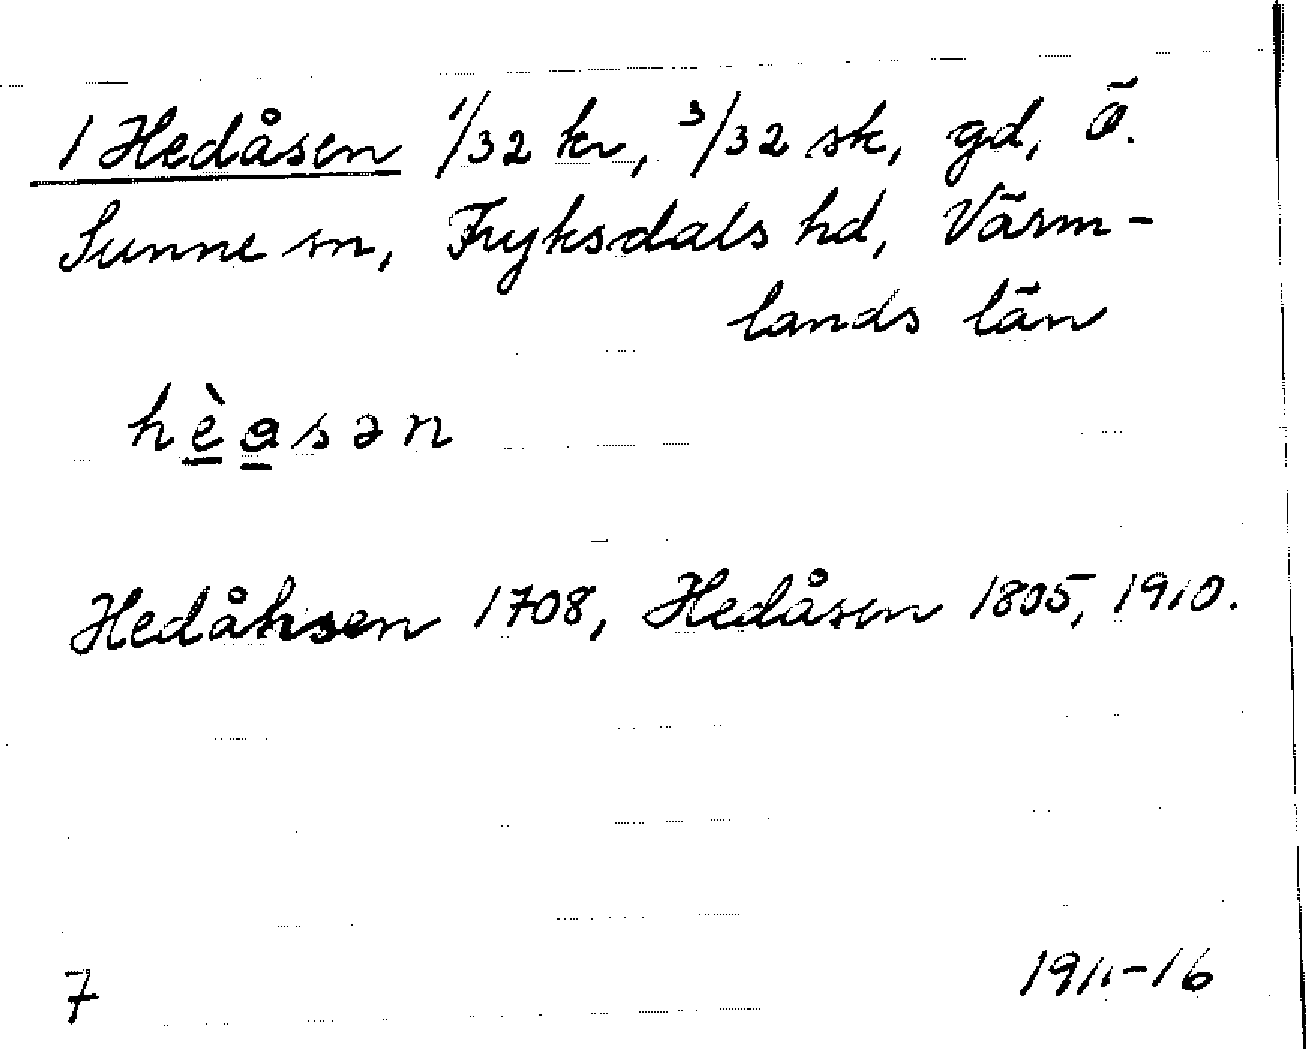 1 Hedåsen 1/32 kr, 3/32 sk, gd, Ö.
Sunne sn, Fryksdals hd, Värm-
lands län
hèasən
Hedåhsen 1708, Hedåsen 1805, 1910.
7
1911-16